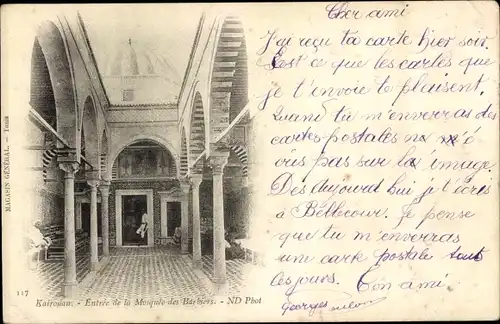 Cher ami
J'ai reçu ta carte hier soir.
c'est ce que les cartes que
je t'envoie te plaisent.
Quand tu m'enverras des
cartes postales ne m'é
cris pas sur la image.
Dès aujourd'hui je t'écris
à Bellecour. Je pense
que tu m'enverras
une carte postale tous
ces jours. Ton ami.
Georges
MAGASIN GÉNÉRAL. — Tunis
117
Kairouan. - Entrée de la Mosquée des Barbiers. - ND Phot